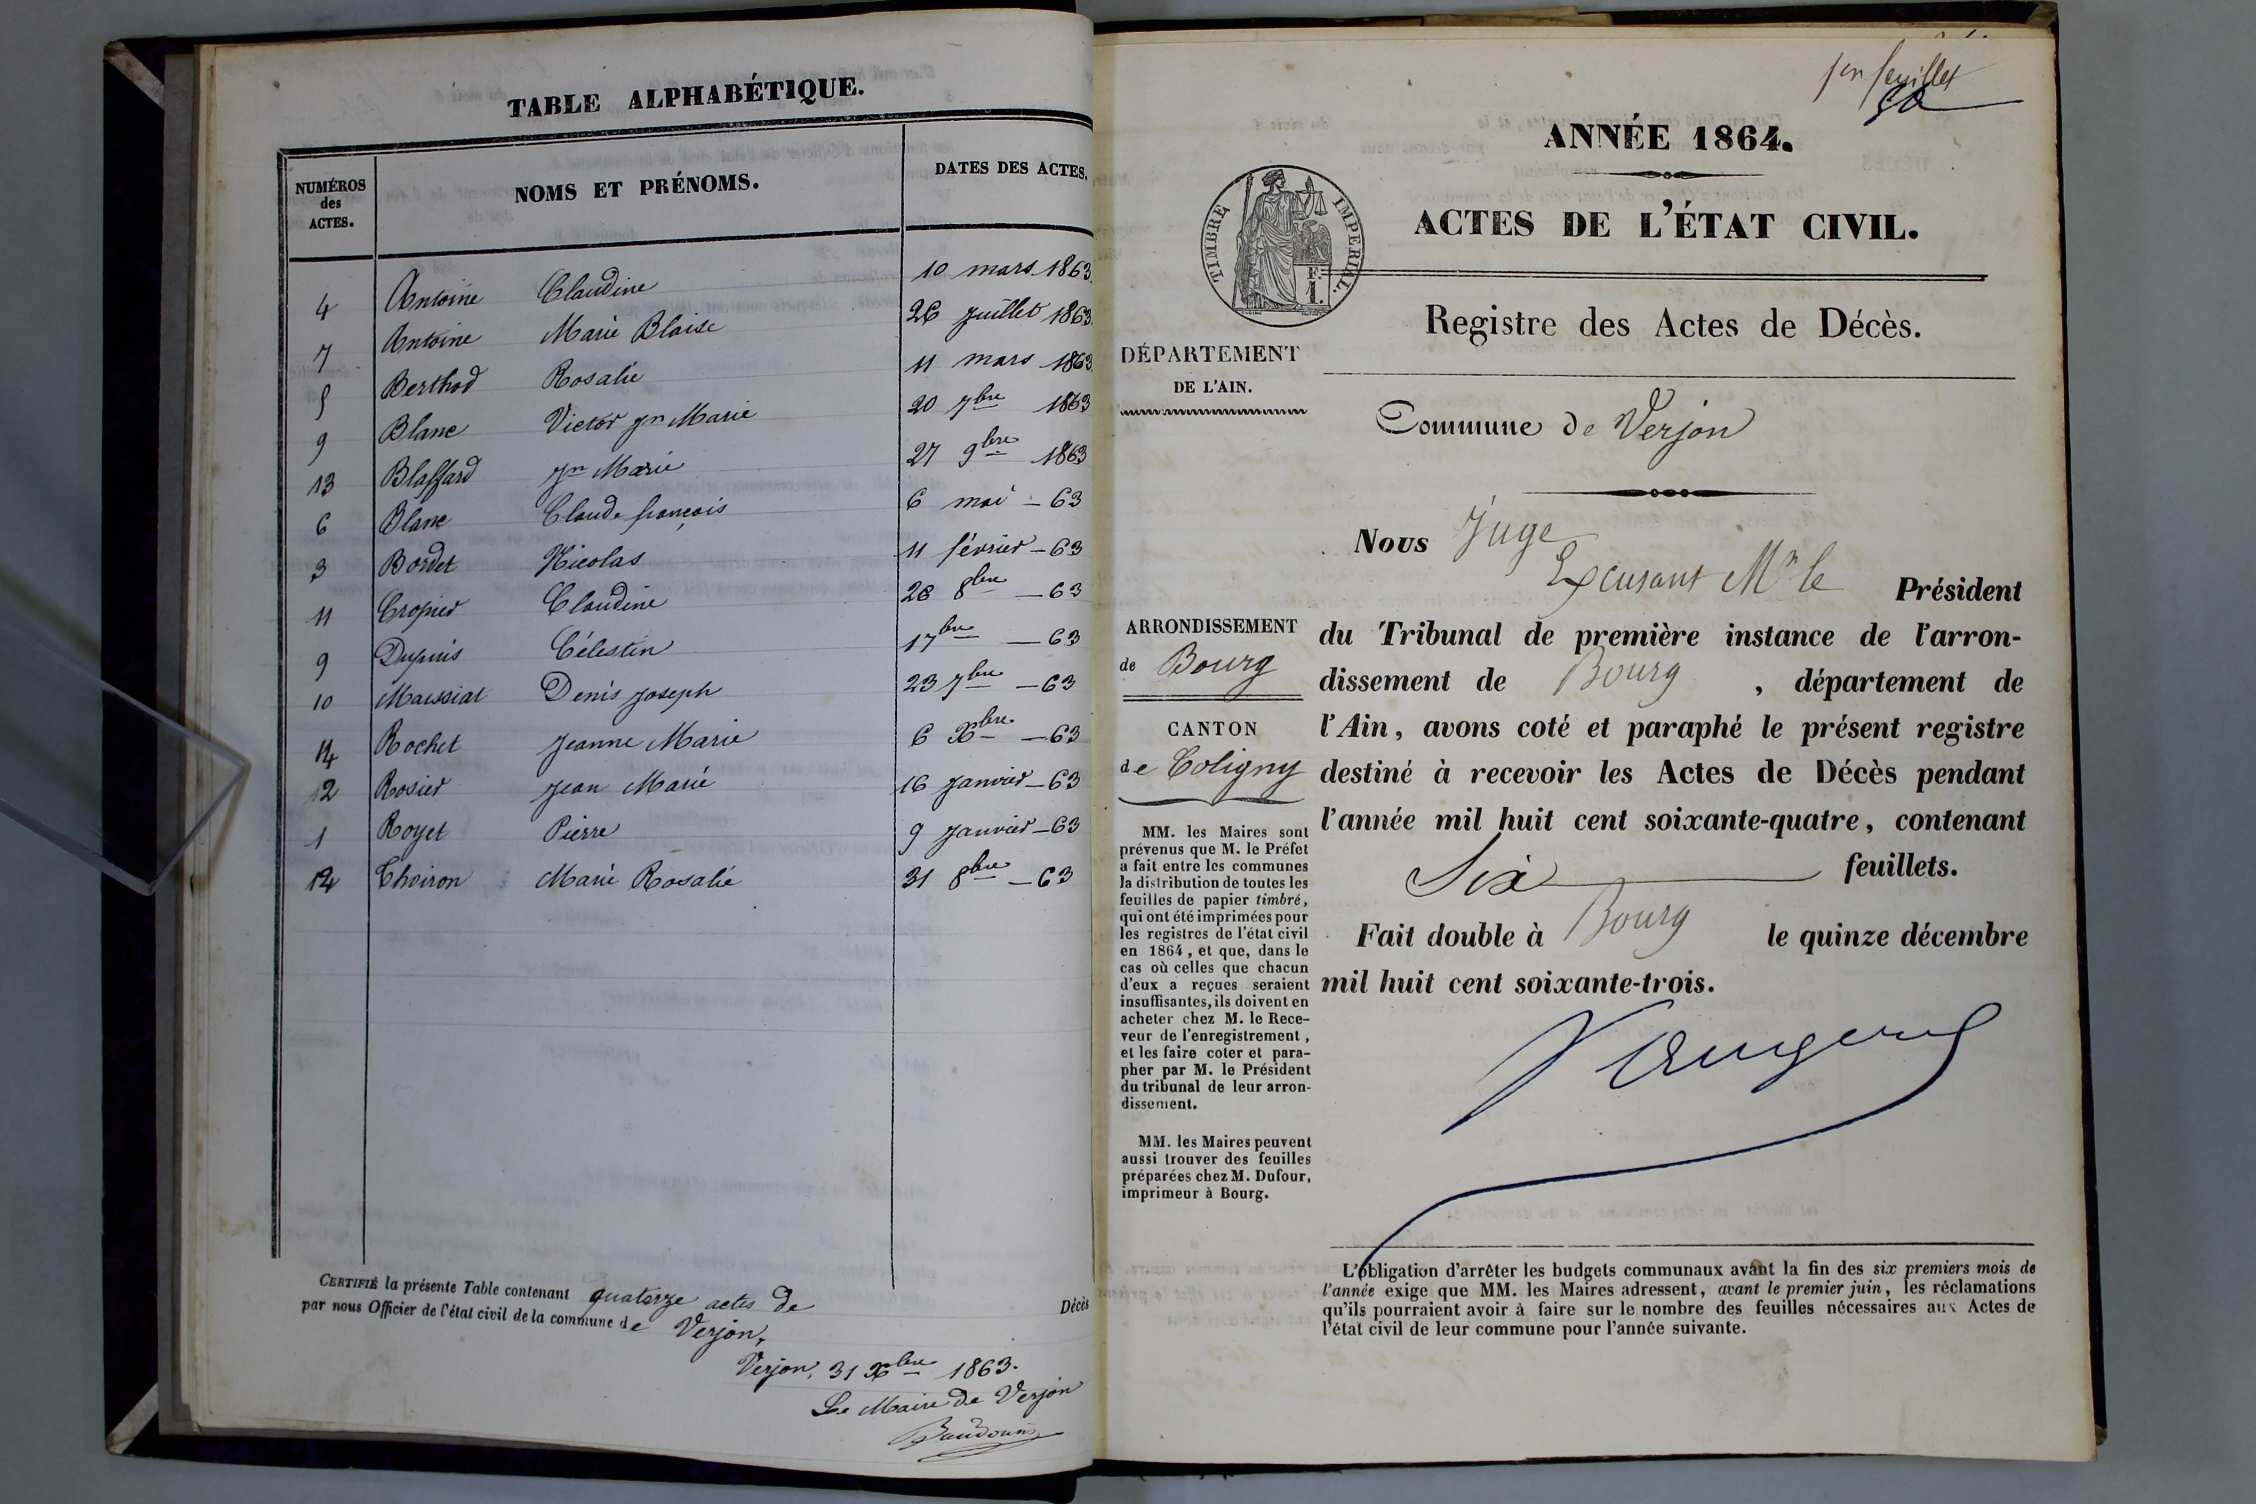 TABLE ALPHABÉTIQUE.
NUMÉROS
des
ACTES.
NOMS ET PRÉNOMS.
DATES DES ACTES.
4 Antoine Claudine 10 mars 1863.
7 Antoine Marie Blaise 26 juillet 1863.
5 Berthod Rosalie 11 mars 1863.
9 Blanc Victor Jn Marie 20 7bre 1863
13 Blaffard Jn Marie 27 9bre 1863
6 Blanc Claude françois 6 mai – 63
3 Bordet Nicolas 11 février – 63
11 Cropier Claudine 28 8bre – 63
9 Dupuis Célestin 1 7bre – 63
10 Maissiat Denis joseph 23 7bre – 63
14 Rochet Jeanne Marie 6 Xbre – 63
2 Rosier Jean Marie 16 Janvier – 63
1 Royet Pierre 9 Janvier – 63
12 Thoiron Marie Rosalie 31 8bre – 63
CERTIFIÉ la présente Table contenant quatorze actes de Décès
par nous Officier de l'état civil de la commune de Verjon,
Verjon, 31 Xbre 1863.
Le Maire de Verjon
Baudouin
1er feuillet
ANNÉE 1864.
ACTES DE L'ÉTAT CIVIL.
TIMBRE IMPÉRIAL.
F.
1.
Registre des Actes de Décès.
DÉPARTEMENT
DE L'AIN.
Commune de Verjon
ARRONDISSEMENT
de Bourg
CANTON
de Coligny
MM. les Maires sont
prévenus que M. le Préfet
a fait entre les communes
la distribution de toutes les
feuilles de papier timbré,
qui ont été imprimées pour
les registres de l'état civil
en 1864, et que, dans le
cas où celles que chacun
d'eux a reçues seraient
insuffisantes, ils doivent en
acheter chez M. le Rece-
veur de l'enregistrement,
et les faire coter et para-
pher par M. le Président
du tribunal de leur arron-
dissement.
MM. les Maires peuvent
aussi trouver des feuilles
préparées chez M. Dufour,
imprimeur à Bourg.
Nous Juge
Excusant Mr le Président
du Tribunal de première instance de l'arron-
dissement de Bourg, département de
l'Ain, avons coté et paraphé le présent registre
destiné à recevoir les Actes de Décès pendant
l'année mil huit cent soixante-quatre, contenant
Six feuillets.
Fait double à Bourg le quinze décembre
mil huit cent soixante-trois.
L'obligation d'arrêter les budgets communaux avant la fin des six premiers mois de
l'année exige que MM. les Maires adressent, avant le premier juin, les réclamations
qu'ils pourraient avoir à faire sur le nombre des feuilles nécessaires aux Actes de
l'état civil de leur commune pour l'année suivante.